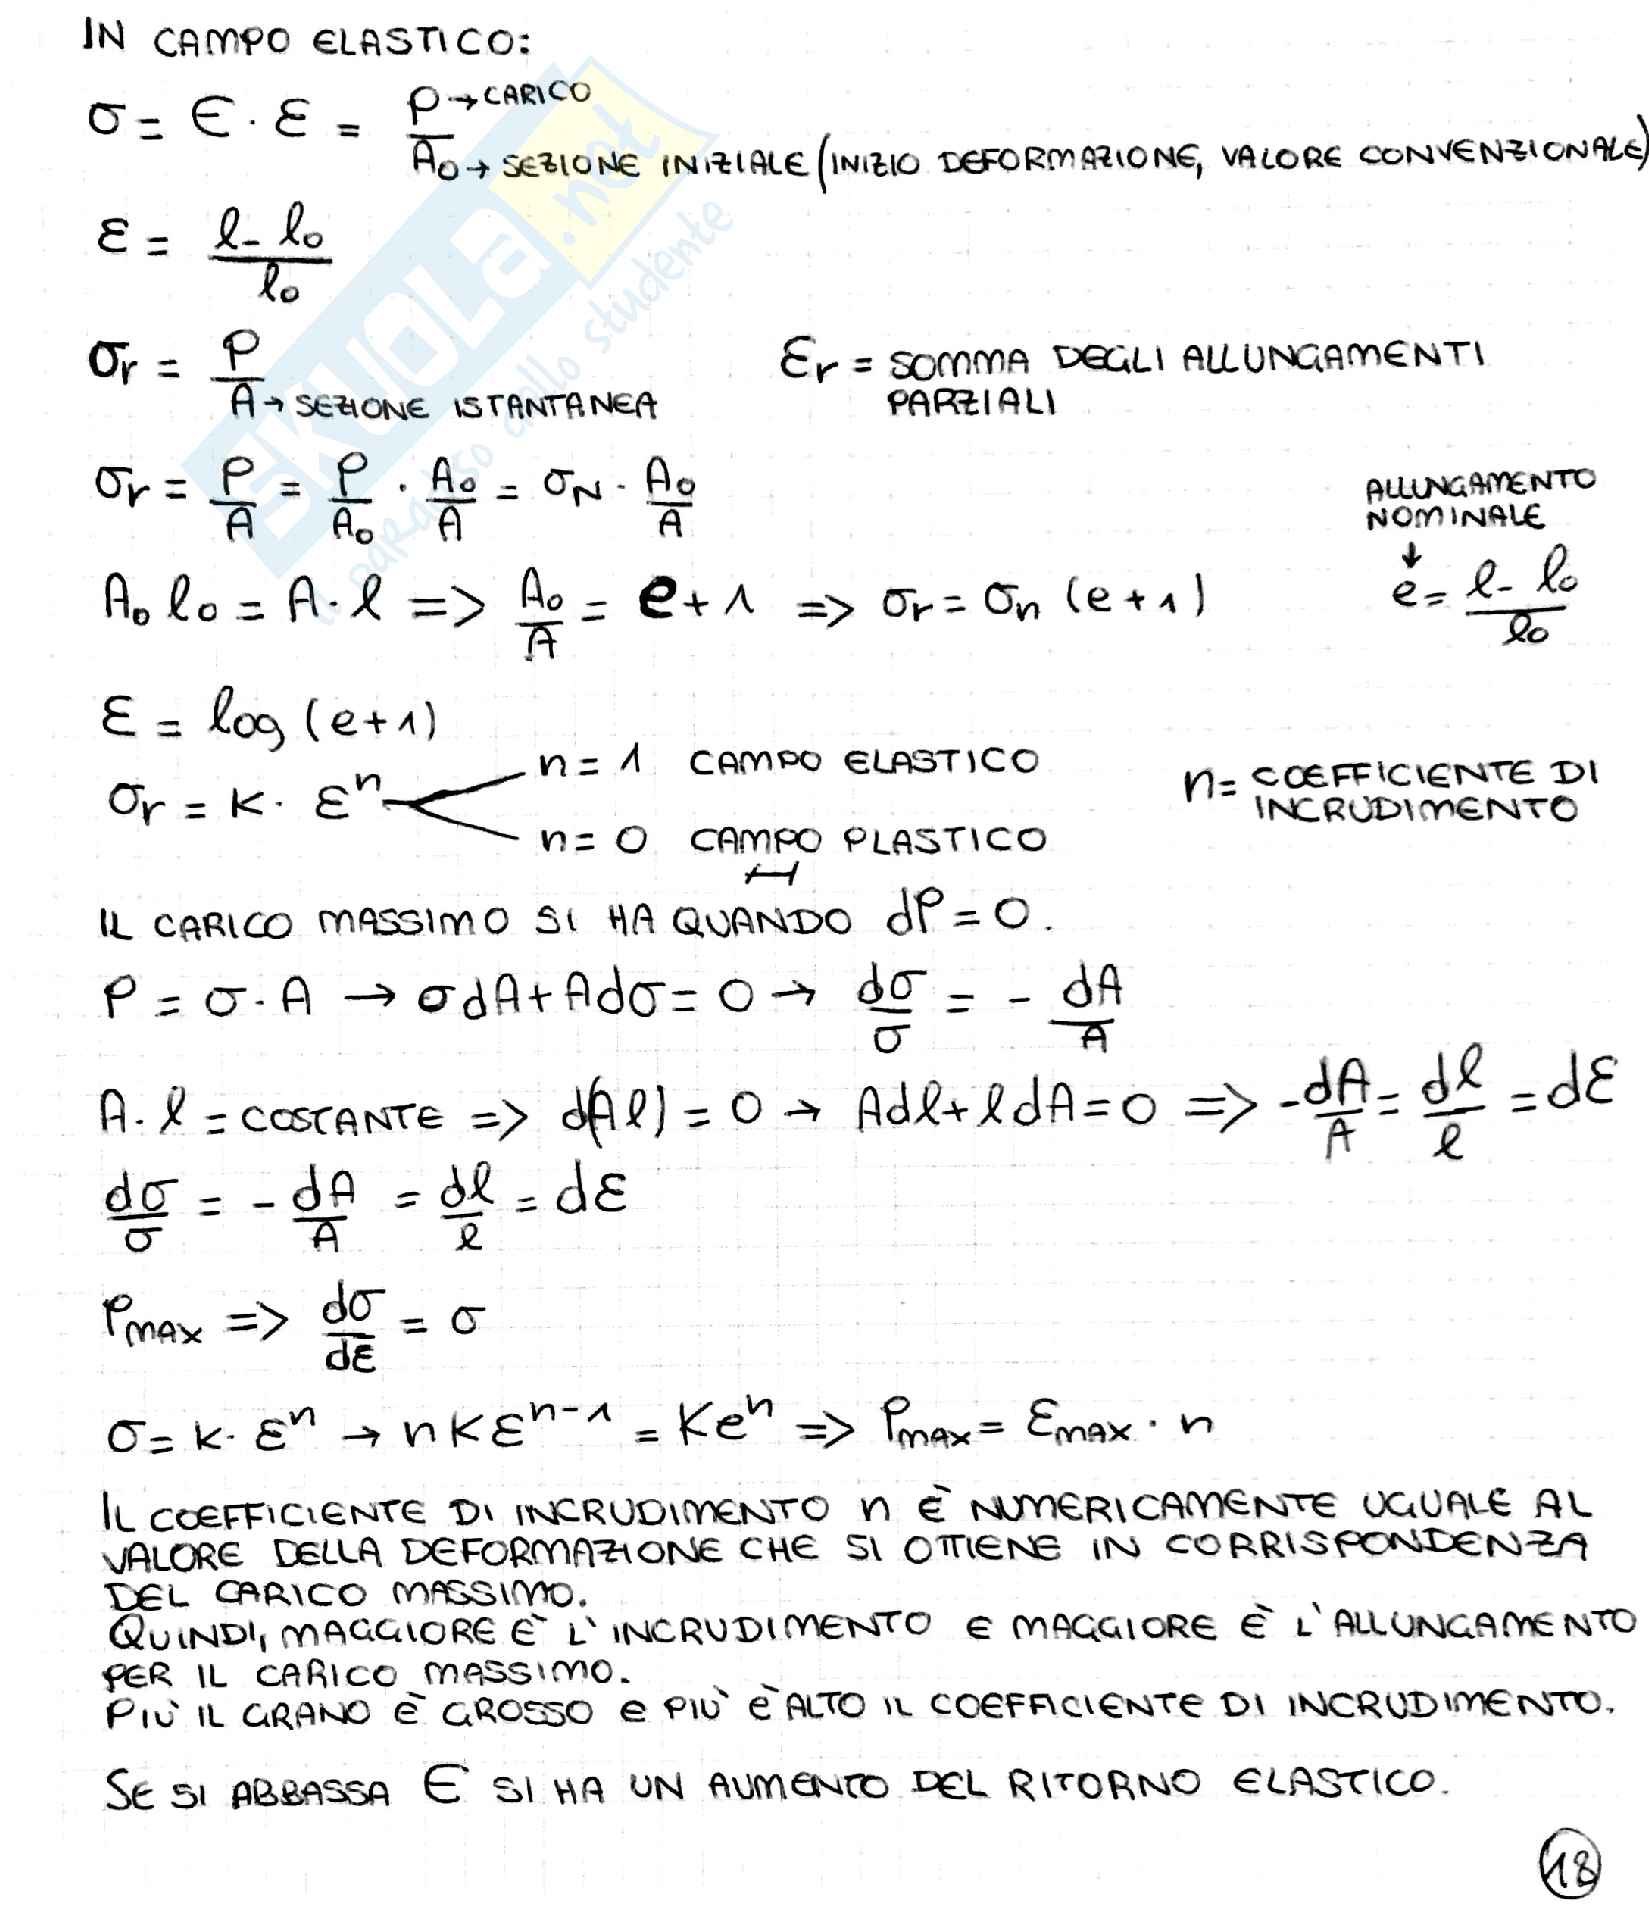 IN CAMPO ELASTICO:
σ = E · ε = P/A₀ P → CARICO
A₀ → SEZIONE INIZIALE (INIZIO DEFORMAZIONE, VALORE CONVENZIONALE)
ε = (l - l₀)/l₀
σr = P/A A → SEZIONE ISTANTANEA
εr = SOMMA DEGLI ALLUNGAMENTI
PARZIALI
σr = P/A = P/A₀ · A₀/A = σN · A₀/A
ALLUNGAMENTO
NOMINALE
↓
e = (l - l₀)/l₀
A₀ l₀ = A · l => A₀/A = e + 1 => σr = σn (e + 1)
ε = log (e + 1)
σr = K · εⁿ
n = 1 CAMPO ELASTICO
n = 0 CAMPO PLASTICO
n = COEFFICIENTE DI
INCRUDIMENTO
IL CARICO MASSIMO SI HA QUANDO dP = 0.
P = σ · A → σdA + Adσ = 0 → dσ/σ = - dA/A
A · l = COSTANTE => d(Al) = 0 → Adl + ldA = 0 => -dA/A = dl/l = dε
dσ/σ = - dA/A = dl/l = dε
PMAX => dσ/dε = σ
σ = K · εⁿ → nKεⁿ⁻¹ = Keⁿ => PMAX = εMAX · n
IL COEFFICIENTE DI INCRUDIMENTO n È NUMERICAMENTE UGUALE AL
VALORE DELLA DEFORMAZIONE CHE SI OTTIENE IN CORRISPONDENZA
DEL CARICO MASSIMO.
QUINDI, MAGGIORE È L'INCRUDIMENTO E MAGGIORE È L'ALLUNGAMENTO
PER IL CARICO MASSIMO.
PIÙ IL GRANO È GROSSO E PIÙ È ALTO IL COEFFICIENTE DI INCRUDIMENTO.
SE SI ABBASSA E SI HA UN AUMENTO DEL RITORNO ELASTICO.
18
SKUOLA.net
il paradiso dello studente